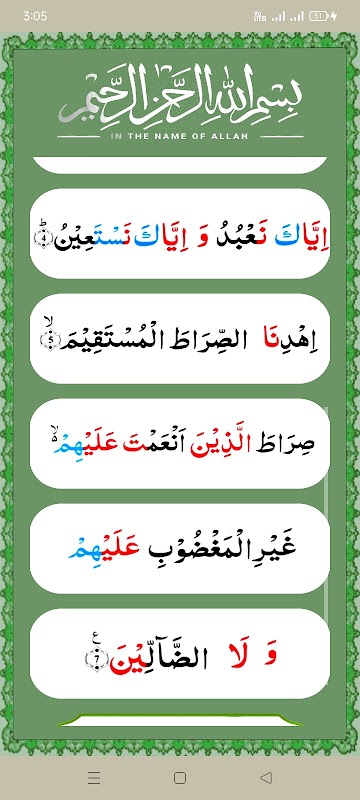 3:05
Vo LTE 51
بِسْمِ اللهِ الرَّحْمٰنِ الرَّحِيْمِ
IN THE NAME OF ALLAH
اِيَّاكَ نَعْبُدُ وَ اِيَّاكَ نَسْتَعِيْنُ ؕ۝4
اِهْدِنَا الصِّرَاطَ الْمُسْتَقِيْمَ ۙ۝5
صِرَاطَ الَّذِيْنَ اَنْعَمْتَ عَلَيْهِمْ ۙ۝
غَيْرِ الْمَغْضُوْبِ عَلَيْهِمْ
وَ لَا الضَّآلِّيْنَ ۝7 ع